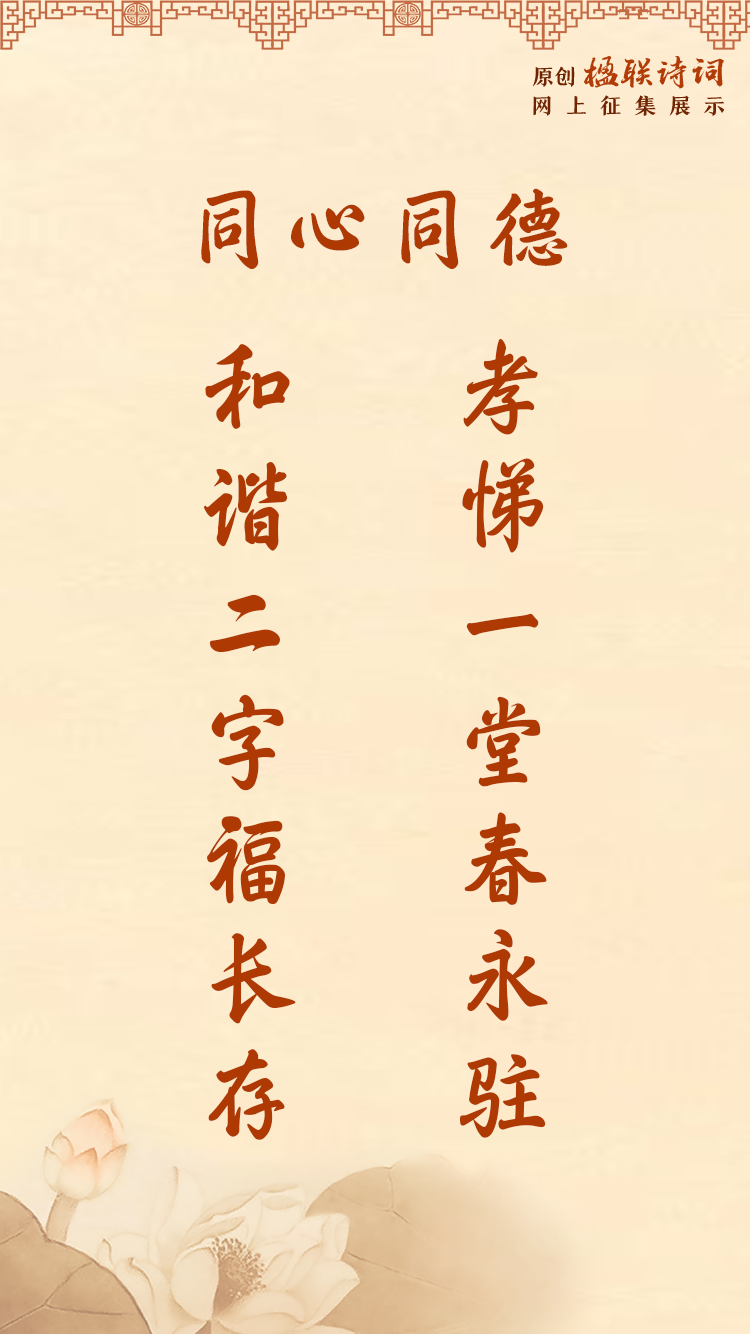 原创 楹联诗词
网上征集展示
同心同德
孝悌一堂春永驻
和谐二字福长存